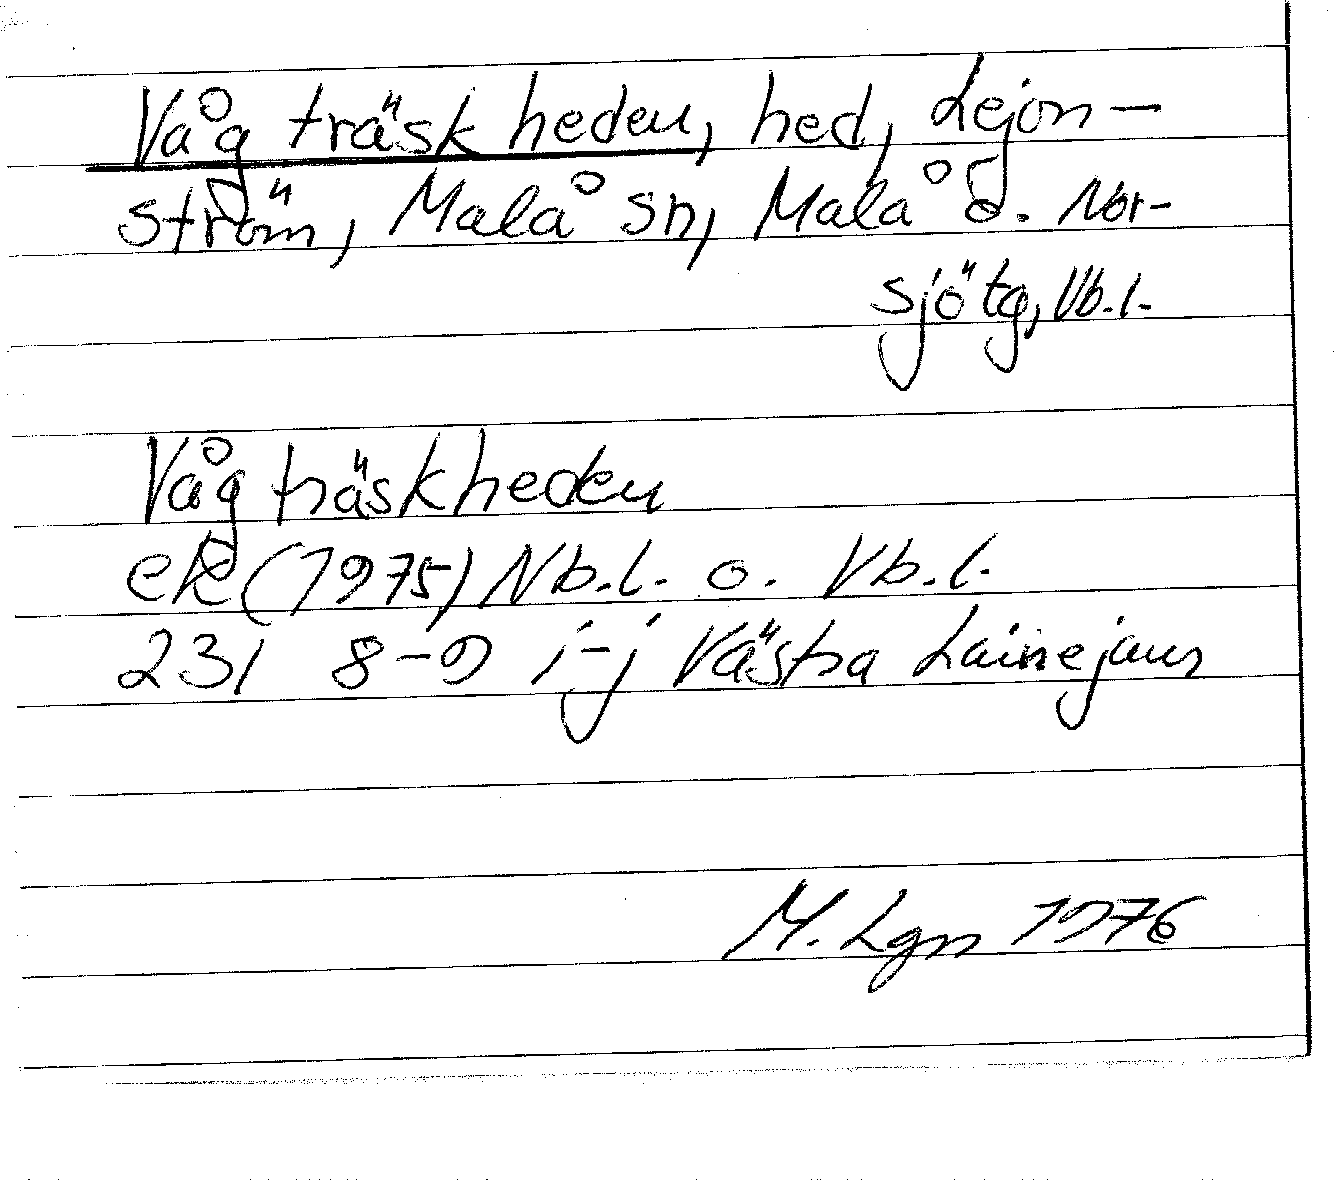 Vågträskheden, hed, Lejon-
ström, Malå sn, Malå o. Nor-
sjö tg, Vb.l.
Vågträskheden
ek (1975) Nb.l. o. Vb.l.
231 8-9 i-j Västra Lainejaur
M. Lgn 1976